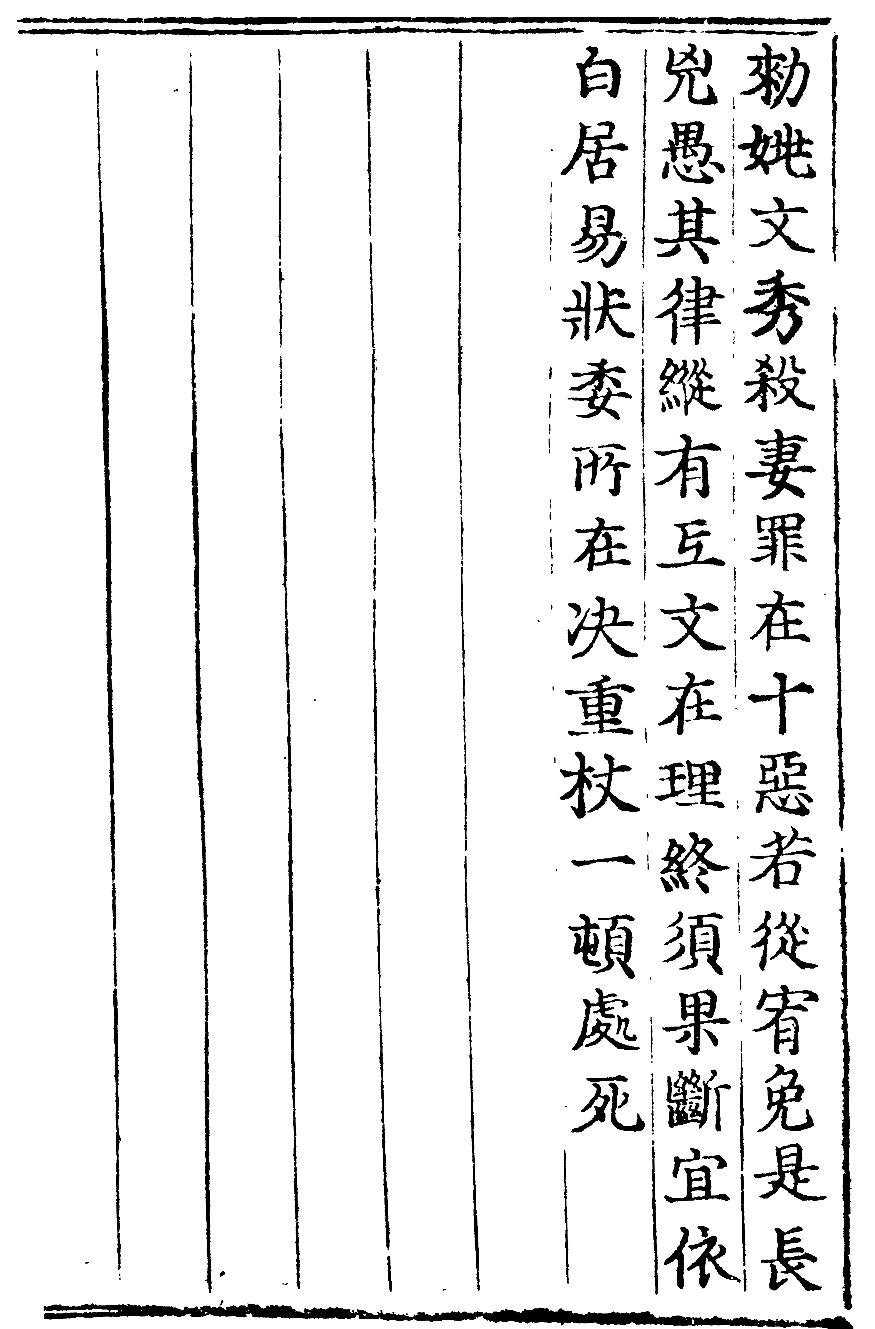 勑姚文秀殺妻罪在十惡若從宥免是長
兇愚其律縱有互文在理終須果斷宜依
白居易狀委所在决重杖一頓處死